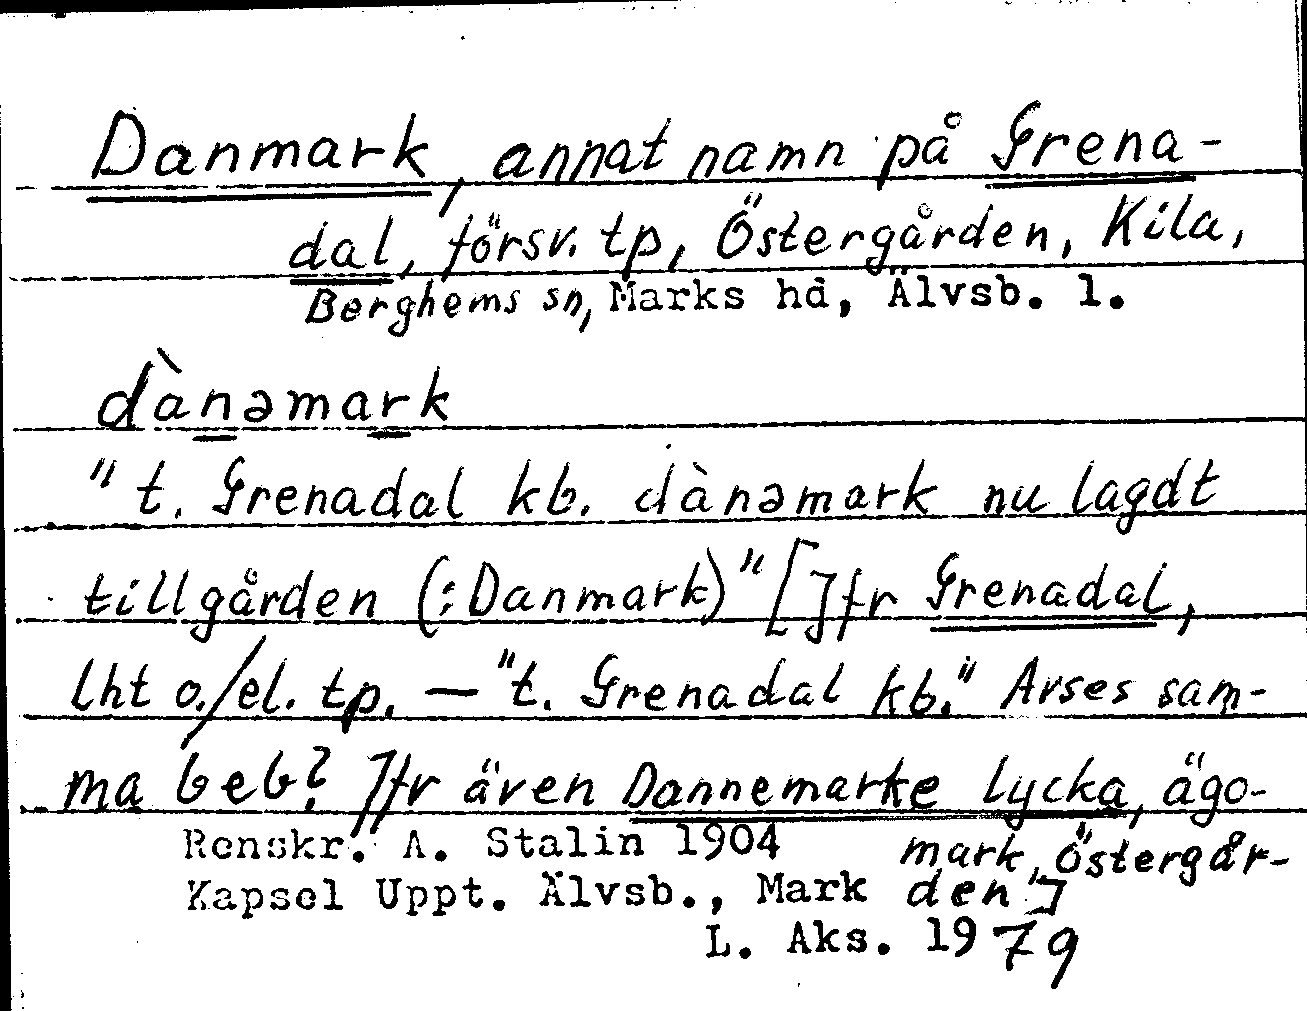 Danmark, annat namn på Grena-
dal, försv. tp, Östergården, Kila,
Berghems sn, Marks hd, Älvsb. l.
dànəmark
"t. Grenadal kb. dànəmark nu lagdt
till gården (: Danmark)" [Jfr Grenadal,
lht o./el. tp. — "t. Grenadal kb." Avses sam-
ma beb? Jfr även Dannemarke lycka, ägo-
mark, Östergår-
den]
Renskr. A. Stalin 1904
Kapsel Uppt. Älvsb., Mark
L. Aks. 1979